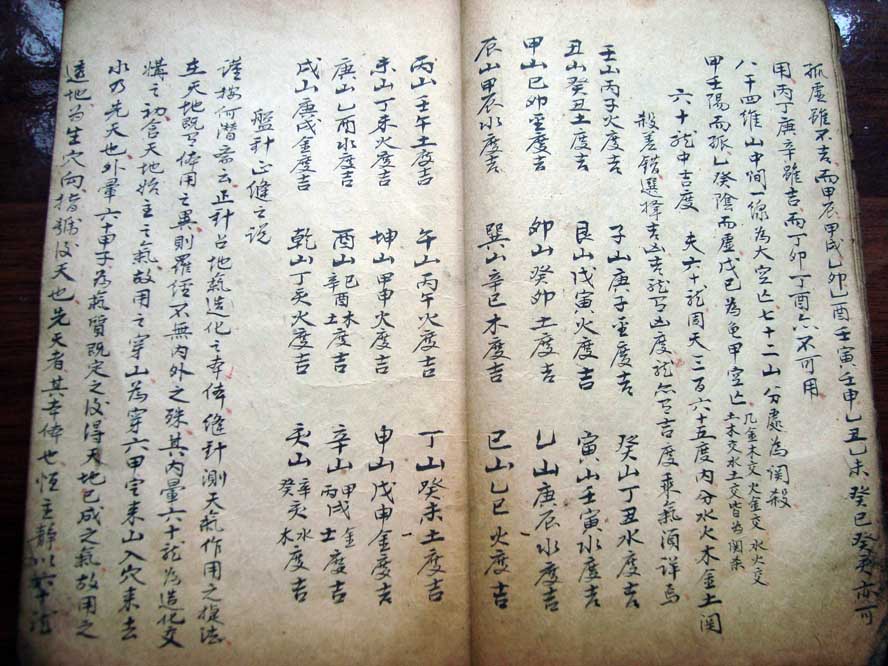 孤虛雖不吉而甲辰甲戌乙卯乙酉壬寅壬申乙丑乙未癸巳癸亥亦可
用丙丁庚辛雖吉而丁卯丁酉亦不可用
八干四維山中間一線為大空亡七十二山分處為関殺
凡金木交火金交水火交
土木交水土交皆為関杀
甲壬陽而孤乙癸陰而虛戊己為龟甲空亡
六十龍中吉度 夫六十龍周天三百六十五度內分水火木金土関
殺差錯選擇吉凶吉龍有凶度凶龍亦有吉度乘氣須詳焉
壬山丙子火度吉 子山庚子金度吉 癸山丁丑水度吉
丑山癸丑土度吉 艮山戊寅火度吉 寅山壬寅水度吉
甲山己卯金度吉 卯山癸卯土度吉 乙山庚辰水度吉
辰山甲辰水度吉 巽山辛巳木度吉 巳山乙巳火度吉
丙山壬午土度吉 午山丙午火度吉 丁山癸未土度吉
未山丁未火度吉 坤山甲申火度吉 申山戊申金度吉
庚山乙酉水度吉 酉山己酉木土度吉 辛山甲戌金丙戌土度吉
戌山庚戌金度吉 乾山丁亥火度吉 亥山辛亥水癸亥木度吉
盤針正縫之說
謹按何潛斋云正針占地氣造化之本体縫針測天氣作用之旋法
在天地既有体用之異則羅經不無內外之殊其內暈六十龍為造化交
媾之初含天地始主之氣故用之穿山為穿六甲定来山入穴来去
水乃先天也外暈六十甲子為氣質既定之後得天地已成之氣故用之
透地為生穴向指歸後天也先天者其本体也恆主靜以